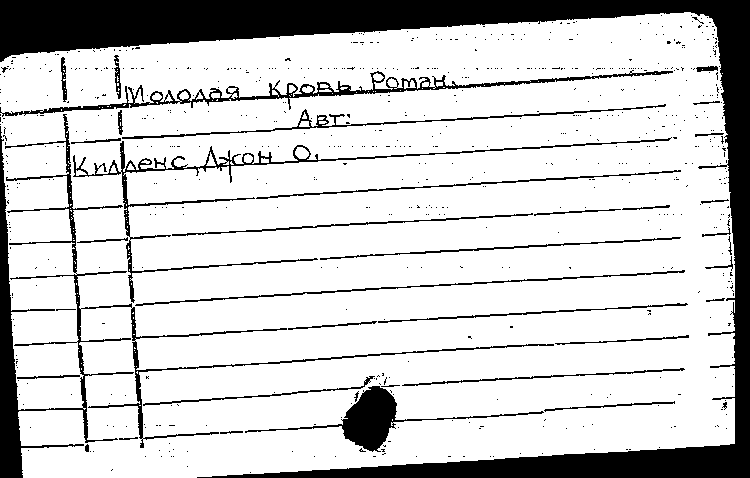 Молодая кровь. Роман.
Авт:
Килленс, Джон О.